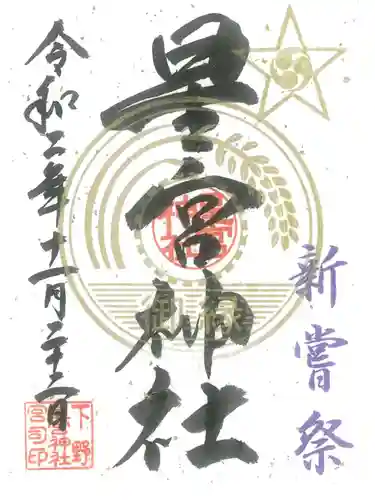 新嘗祭
星宮神社
令和二年十一月二十三日
御縁
下野
星宮神社
宮司印